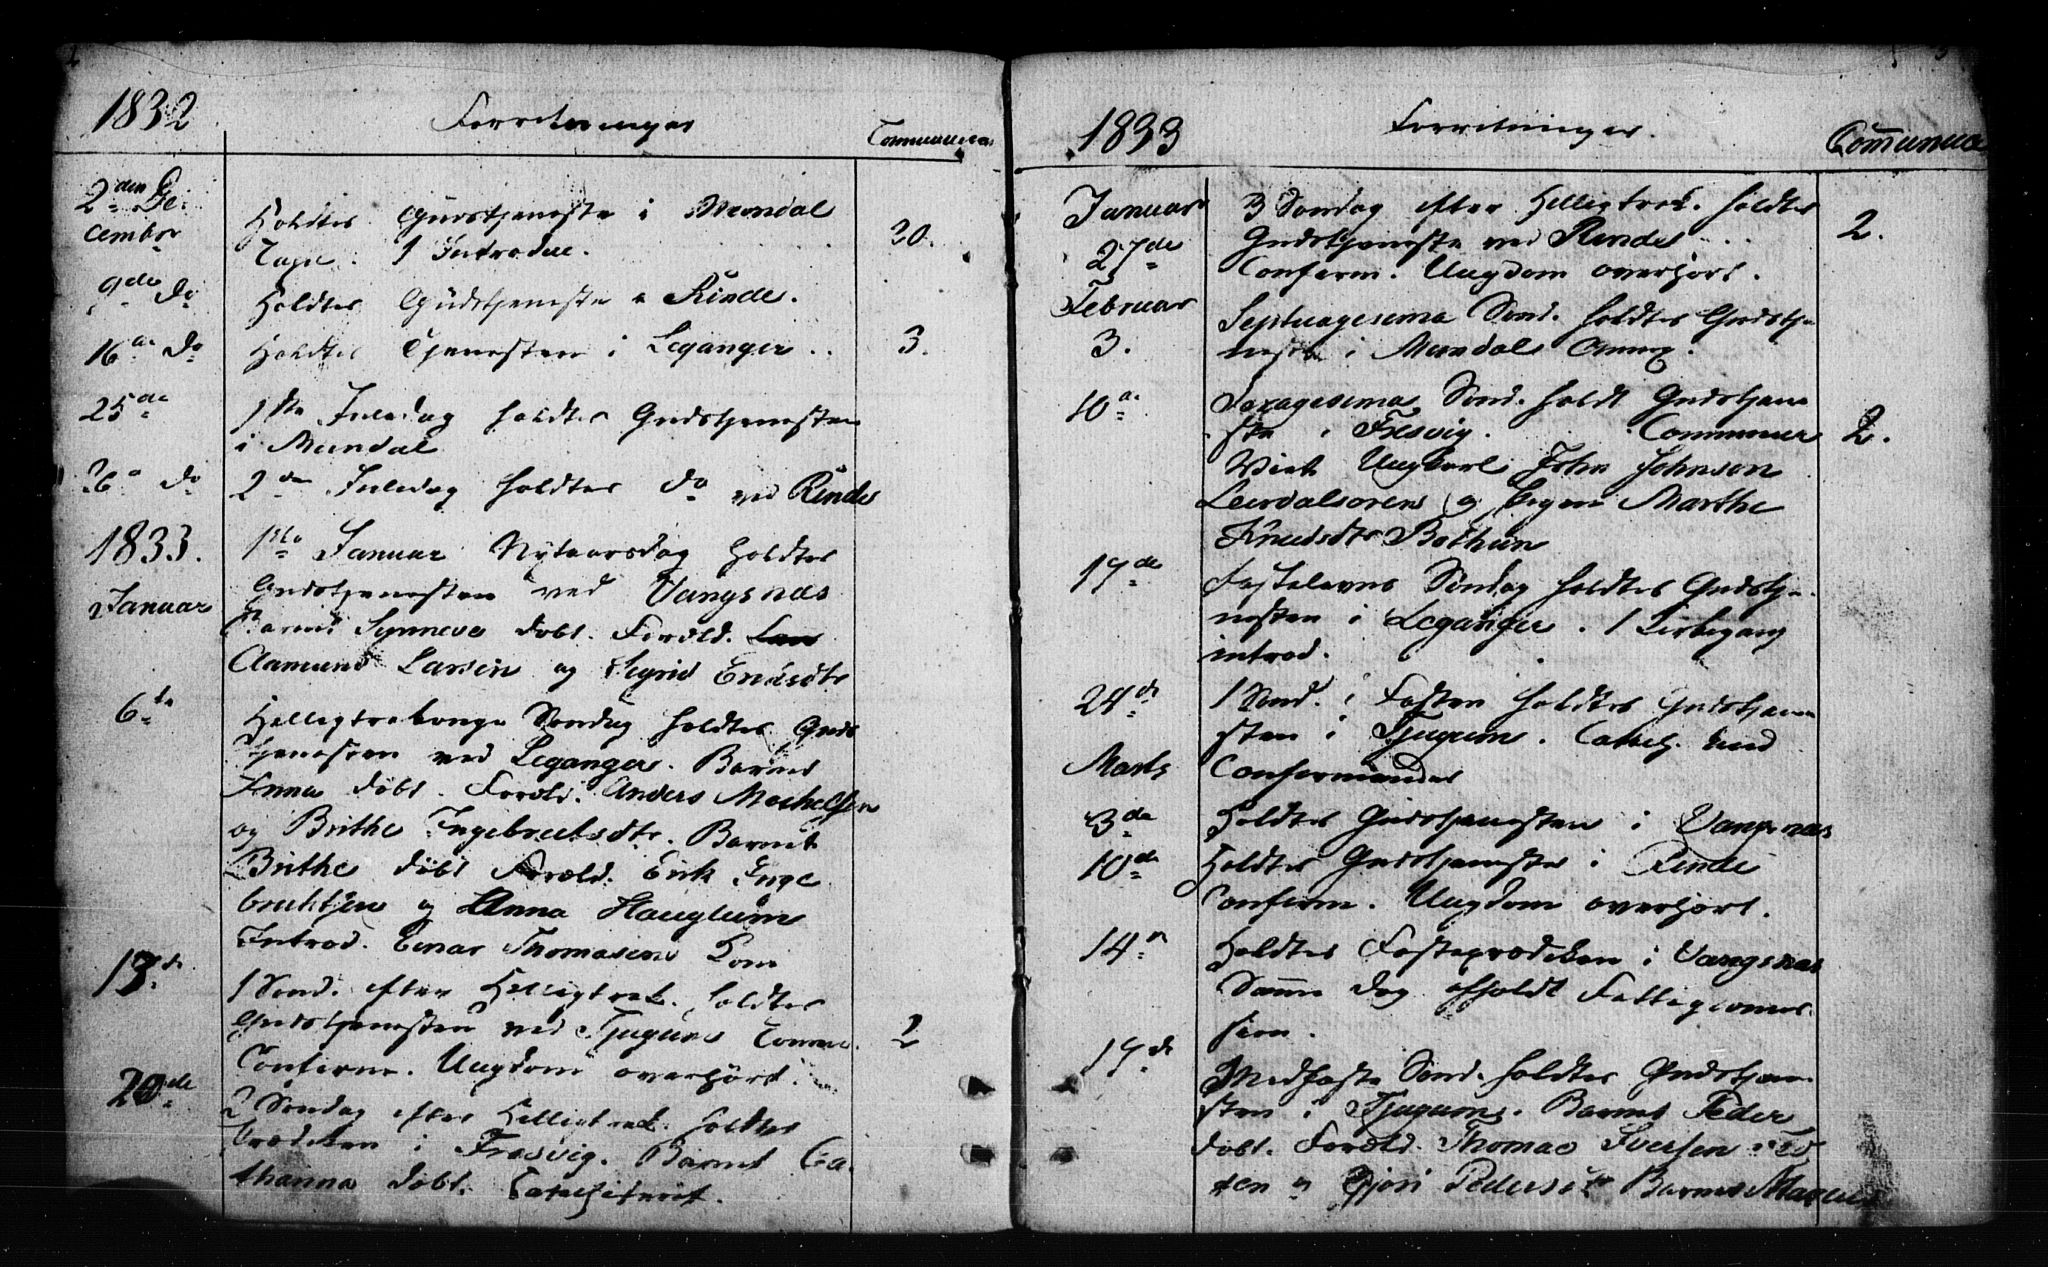 1832
Forretninger
Communican
2den De-
cember
Holdtes Gudstjeneste i Mundal
Tope. 1 Introduc.
20.
9de do
Holdtes Gudstjeneste i Rinde.
16de do
Holdtes Tjenesten i Leganger
3.
25de
1ste Juledag holdtes Gudstjenesten
i Mundal
26de do
2den Juledag holdtes do ved Rinde
1833.
Januar
1ste Januar Nytaarsdag holdtes
Gudstjenesten ved Vangsnæs
Barnet Synneve døbt. Foræld.
Aamund Larsen og Sigrid Endresdtr
6te
Helligtrekonge Søndag holdtes Guds
tjenesten ved Leganger. Barnet
Anna døbt. Foræld. Anders Michelsen
og Brithe Ingebrectsdtr. Barnet
Brithe døbt Foræld. Erik Inge
brechtsen og Anna Hauglum
Introd. Einar Thomasens Kone
13de
1 Sønd. efter Helligtrek. holdtes
Gudstjenesten ved Tjugum Commu.
Conferm. Ungdom overhørt.
2
20de
2 Søndag efter Helligtrek. holdtes
Prædiken i Fresvig. Barnet Ca-
thanna døbt. Catechiseret.
1833
Forretninger.
Comunica
Januar
27de
3 Søndag efter Helligtrek. holdtes
Gudstjeneste ved Rinde
Conferm. Ungdom overhørt.
2.
Februar
3.
Septuagesima Sønd. holdtes Gudstje
neste i Mundals Annex.
10de
Sexagesima Sønd. holdt Gudstjene
ste i Fresvig. Communic
2.
Viet Ungkarl John Johnsen
Leirdalsøren og Pigen Marthe
Knudsdtr Bothun
17de
Fastelavns Søndag holdtes Gudstje-
nesten i Leganger. 1 Kirkegang
introd.
24de
1 Sønd. i Fasten holdtes Gudstjene
sten i Tjugum. Catech. med
Confermander
Marts
3de
Holdtes Gudstjenesten i Vangsnæs
10de
Holdtes Gudstjeneste i Rinde
Conferm. Ungdom overhørt.
14de
Holdtes Fasteprædiken i Vangsnæs
Samme Dag afholdt Fattigcomis-
sion.
17de
Midfaste Sønd. holdtes Gudstjene-
sten i Tjugum. Barnet Peder
døbt. Foræld. Thomas Iversen
og Gjøri Pedersdtr Barnet